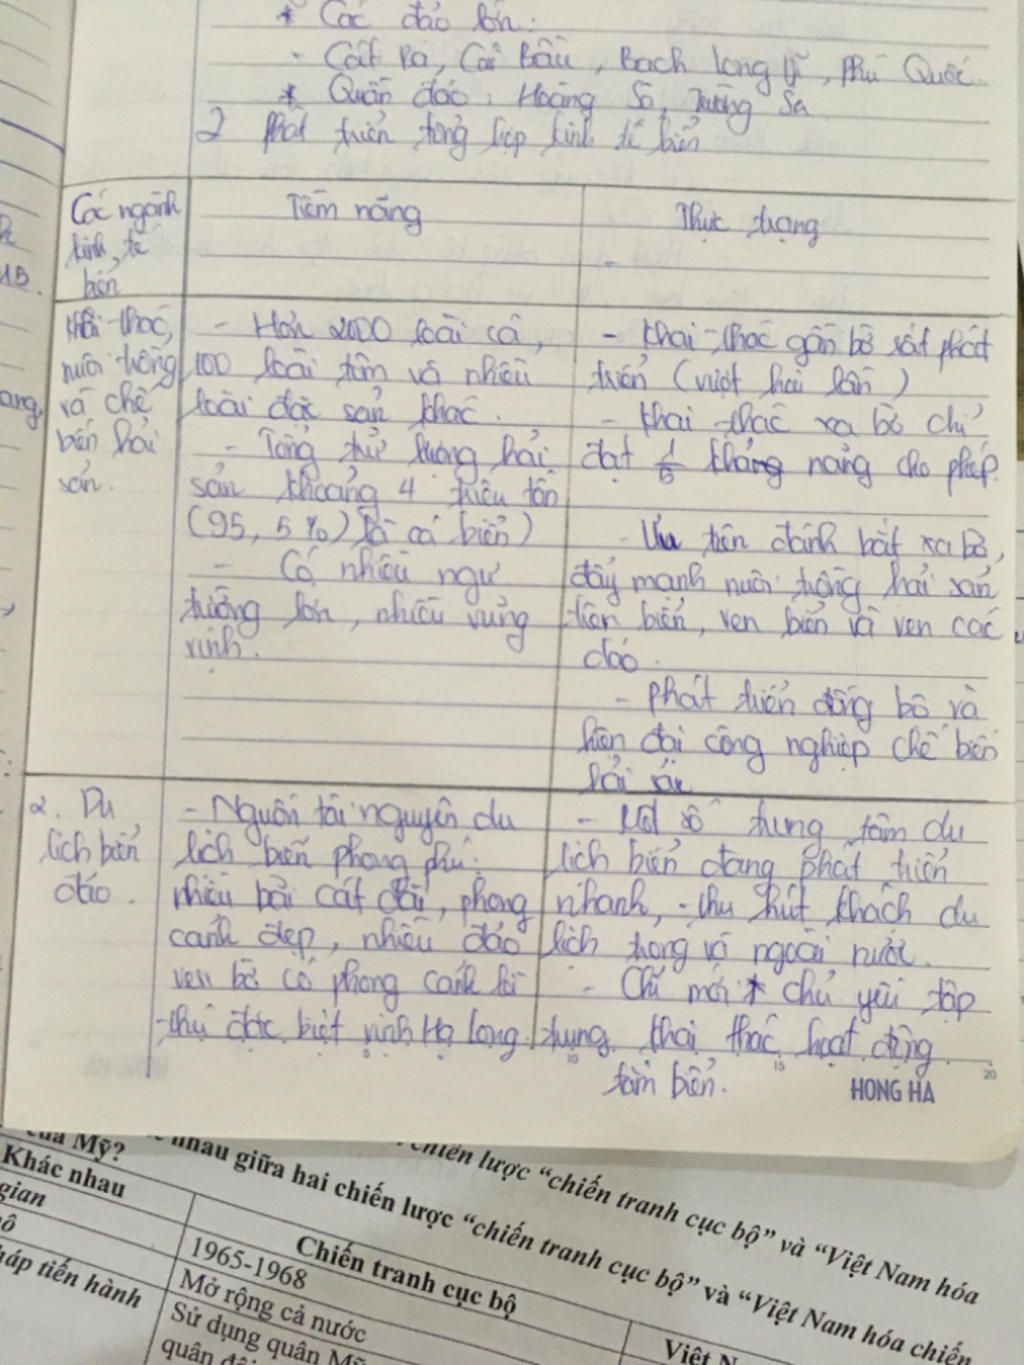 * Các đảo lớn:
- Cát Bà, Cái Bầu, Bạch Long Vĩ, Phú Quốc
* Quần đảo: Hoàng Sa, Trường Sa
2 Phát triển tổng hợp kinh tế biển
Các ngành
kinh tế
biển
Tiềm năng
Thực trạng
-
Khai thác,
nuôi trồng
và chế
biến hải
sản.
- Hơn 2000 loài cá,
100 loài tôm và nhiều
loài đặc sản khác.
- Tổng trữ lượng hải
sản khoảng 4 triệu tấn
(95,5%) là cá biển)
- Có nhiều ngư
trường lớn, nhiều vũng
vịnh.
- Khai thác gần bờ sát phát
triển (vượt hai lần)
- Khai thác xa bờ chỉ
đạt 1/5 khả năng cho phép.
- Ưu tiên đánh bắt xa bờ,
đẩy mạnh nuôi trồng hải sản
trên biển, ven biển và ven các
đảo.
- Phát triển đồng bộ và
hiện đại công nghiệp chế biến
hải sản
2. Du
lịch biển
đảo.
- Nguồn tài nguyên du
lịch biển phong phú:
nhiều bãi cát dài, phong
cảnh đẹp, nhiều đảo
ven bờ có phong cảnh kì
thú đặc biệt vịnh Hạ Long.
- Một số trung tâm du
lịch biển đang phát triển
nhanh, thu hút khách du
lịch trong và ngoài nước.
- Chỉ mới chủ yếu tập
trung khai thác hoạt động
tắm biển.
5 10 15 20
HONG HA
của Mỹ?
chiến lược “chiến tranh cục bộ” và “Việt Nam hóa
nhau giữa hai chiến lược “chiến tranh cục bộ” và “Việt Nam hóa chiến
Khác nhau
Chiến tranh cục bộ
Việt N
gian
1965-1968
Mở rộng cả nước
háp tiến hành
Sử dụng quân Mỹ
quân đội